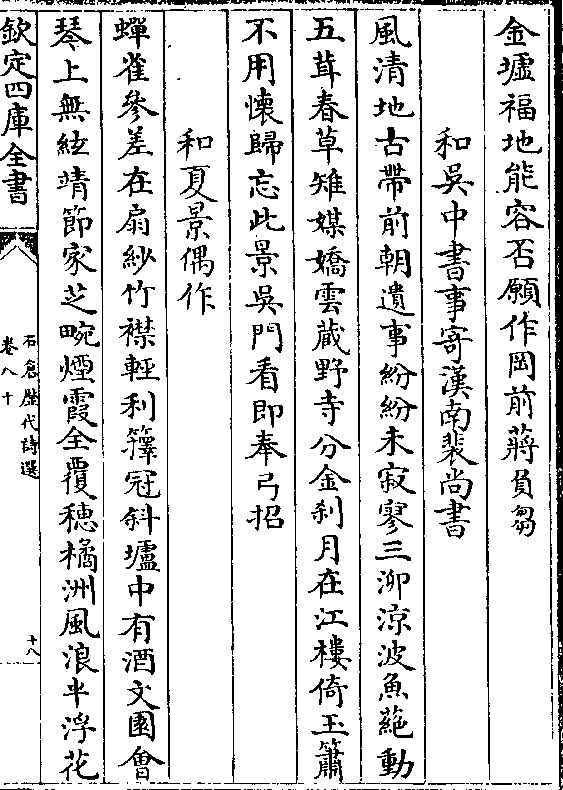 金壚福地能容否願作岡前蔣負芻
和吳中書事寄漢南裴尚書
風清地古帶前朝遺事紛紛未寂寥三泖涼波魚蕝動
五茸春草雉媒嬌雲蔵野寺分金刹月在江樓倚玉簫
不用懷歸忘此景吳門看即奉弓招
和夏景偶作
蟬雀參差在扇紗竹襟輕利籜冠斜壚中有酒文園會
琴上無絃靖節家芝畹煙霞全覆穗橘洲風浪半浮花
欽定四庫全書
石倉歴代詩選
卷八十
十八